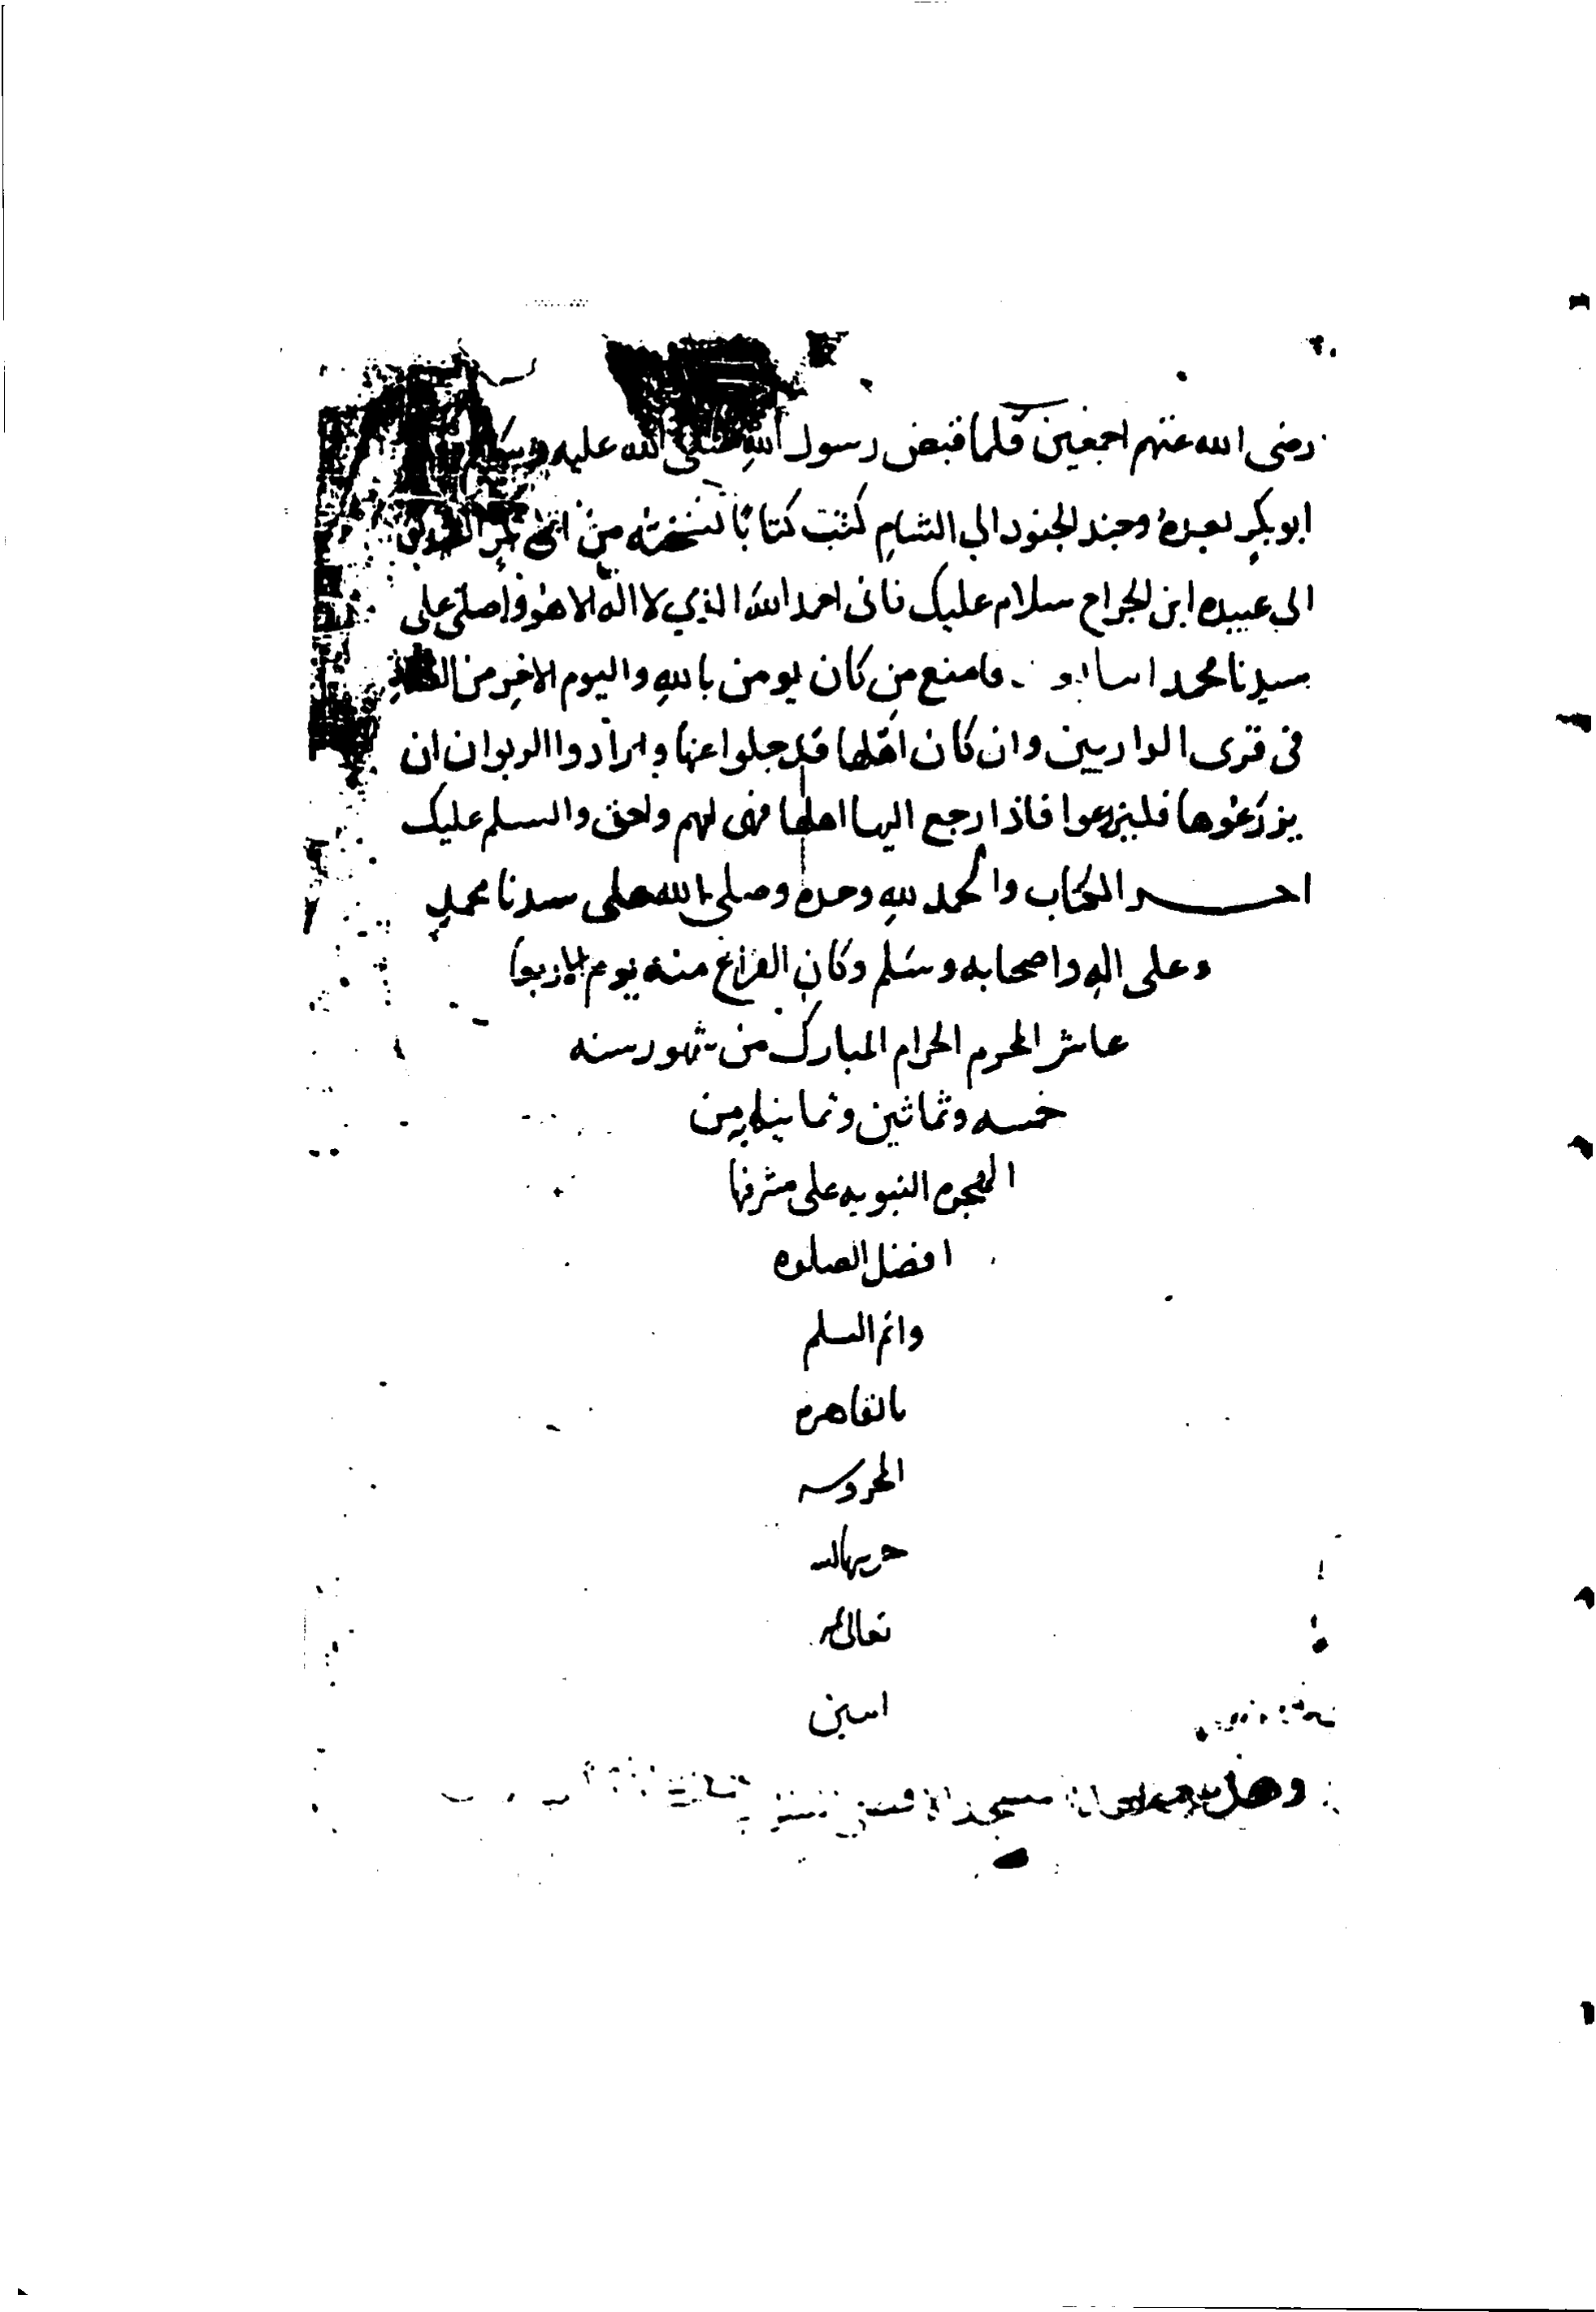 رضى الله عنهم اجمعين فلما قبض رسول الله صلى الله عليه وسلم
ابو بكر بعده وجند الجنود الى الشام كتب كتابا نسخته من ابى بكر الصديق
الى عبيده ابن الجراح سلام عليك فانى احمد الله الذي لا اله الا هو واصلى على
سيدنا محمد اما فامنع من كان يومن بالله واليوم الاخر من الفساد
فى قرى الداريين وان كان اهلها قد جلوا عنها وارادوا ان
يزرعوها فليزرعوا فاذا رجع اليها اهلها فهى لهم واحق والسلم عليك
اخر الكتاب والحمد لله وحده وصلى الله على سيدنا محمد
وعلى اله واصحابه وسلم وكان الفراغ منه يوم الاربعا
عاشر المحرم الحرام المبارك من شهور سنه
خمسه وثمانمايه من
الهجره النبويه على مشرفها
افضل الصلوه
واتم السلم
بالقاهره
المحروسه
حرسها الله
تعالى
امين